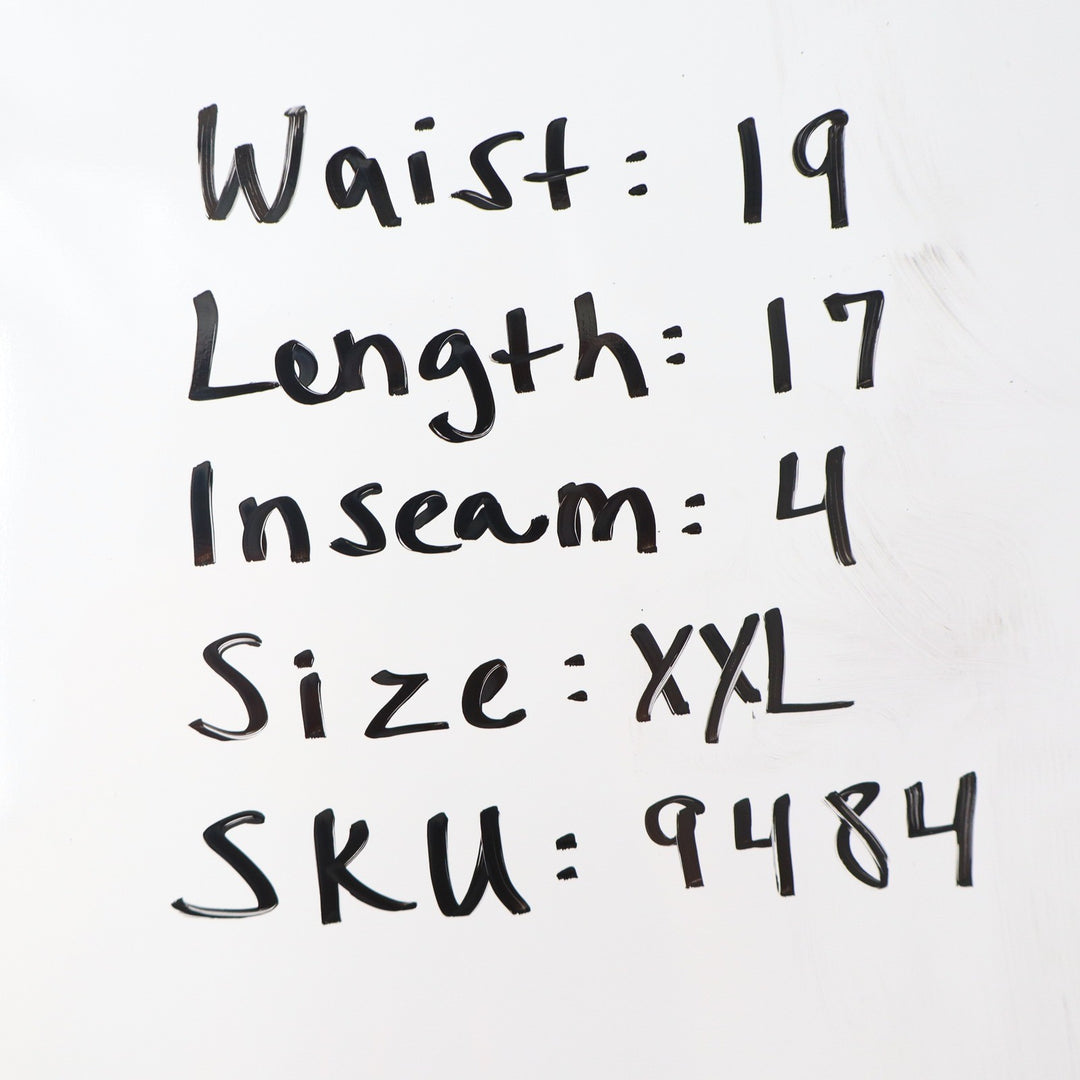 Waist: 19
Length: 17
Inseam: 4
Size: XXL
SKU: 9484